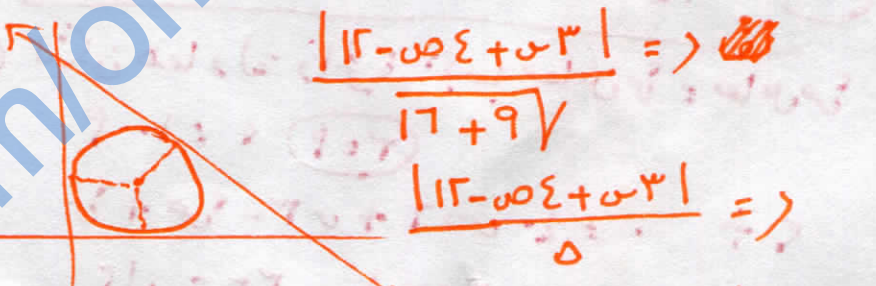 ر = |٣س + ٤ص - ١٢|
√٩ + ١٦
ر = |٣س + ٤ص - ١٢|
٥
m/on